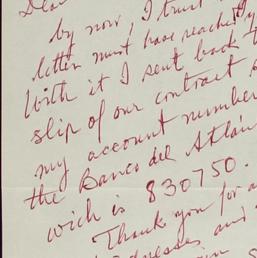 Dear
by now, I trust
letter must have reached
With it I sent back
slip of our contract
my account number
the Banco del Atlán
wich is 830750.
Thank you for a
and